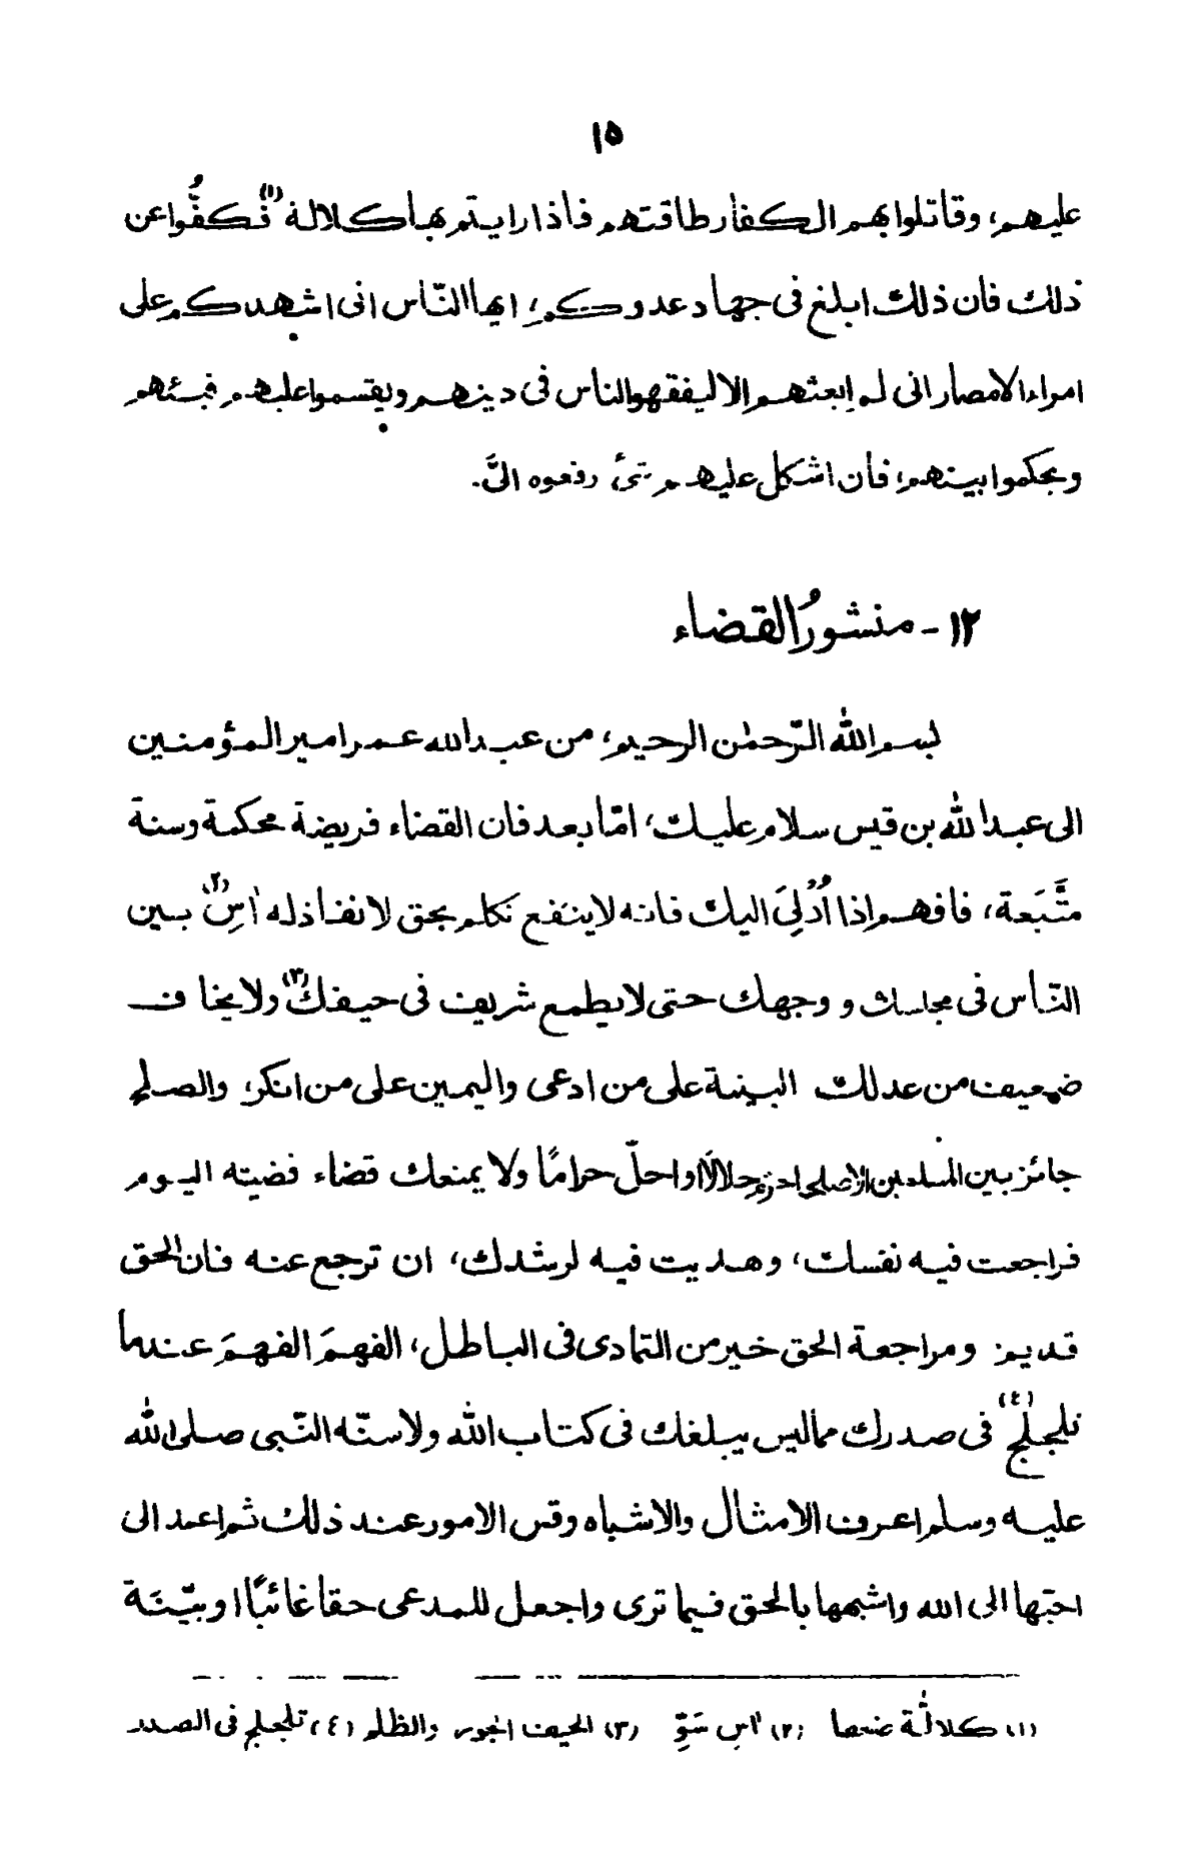 ١٥
عليهم، وقاتلوا بهم الكفار طاقتهم فاذا رايتم بها كلالة (١) فَكُفُّوا عن
ذلك فان ذلك ابلغ فى جهاد عدوكم، ايها النّاس انى اشهدكم على
امراء الامصار انى لم ابعثهم الا ليفقهوا الناس فى دينهم ويقسموا عليهم فيئهم
ويحكموا بينهم، فان اشكل عليهم شئ رفعوه الىَّ.
١٢ - منشورُ القضاء
بسم الله الرّحمٰن الرحيم، من عبدالله عمر امير المؤمنين
الى عبدالله بن قيس سلام عليك، امّا بعد فان القضاء فريضة محكمة وسنة
متَّبَعة، فافهم اذا اُدْلِىَ اليك فانه لاينفع تكلم بحق لا نفاذ له اٰسِ (٢) بين
النّاس فى مجلسك و وجهك حتى لا يطمع شريف فى حيفك (٣) ولا يخاف
ضعيف من عدلك البينة على من ادعى واليمين على من انكر، والصلح
جائز بين المسلمين الا صلحا حرّم حلالًا او احلّ حرامًا ولا يمنعك قضاء قضيته اليوم
فراجعت فيه نفسك، وهديت فيه لرشدك، ان ترجع عنه فان الحق
قديم ومراجعة الحق خير من التمادى فى الباطل، الفهمَ الفهمَ عندما
تلجلج (٤) فى صدرك مماليس يبلغك فى كتاب الله ولا سنّه النّبى صلى الله
عليه وسلم اعرف الامثال والاشباه وقس الامور عند ذلك ثم اعمد الى
احبّها الى الله واشبهها بالحق فيما ترى واجعل للمدعى حقا غائبًا او بيّنَة
(١) كلالَة ضعفا (٢) اٰسِ سَوِّ (٣) الحيف الجور والظلم (٤) تلجلج فى الصدر